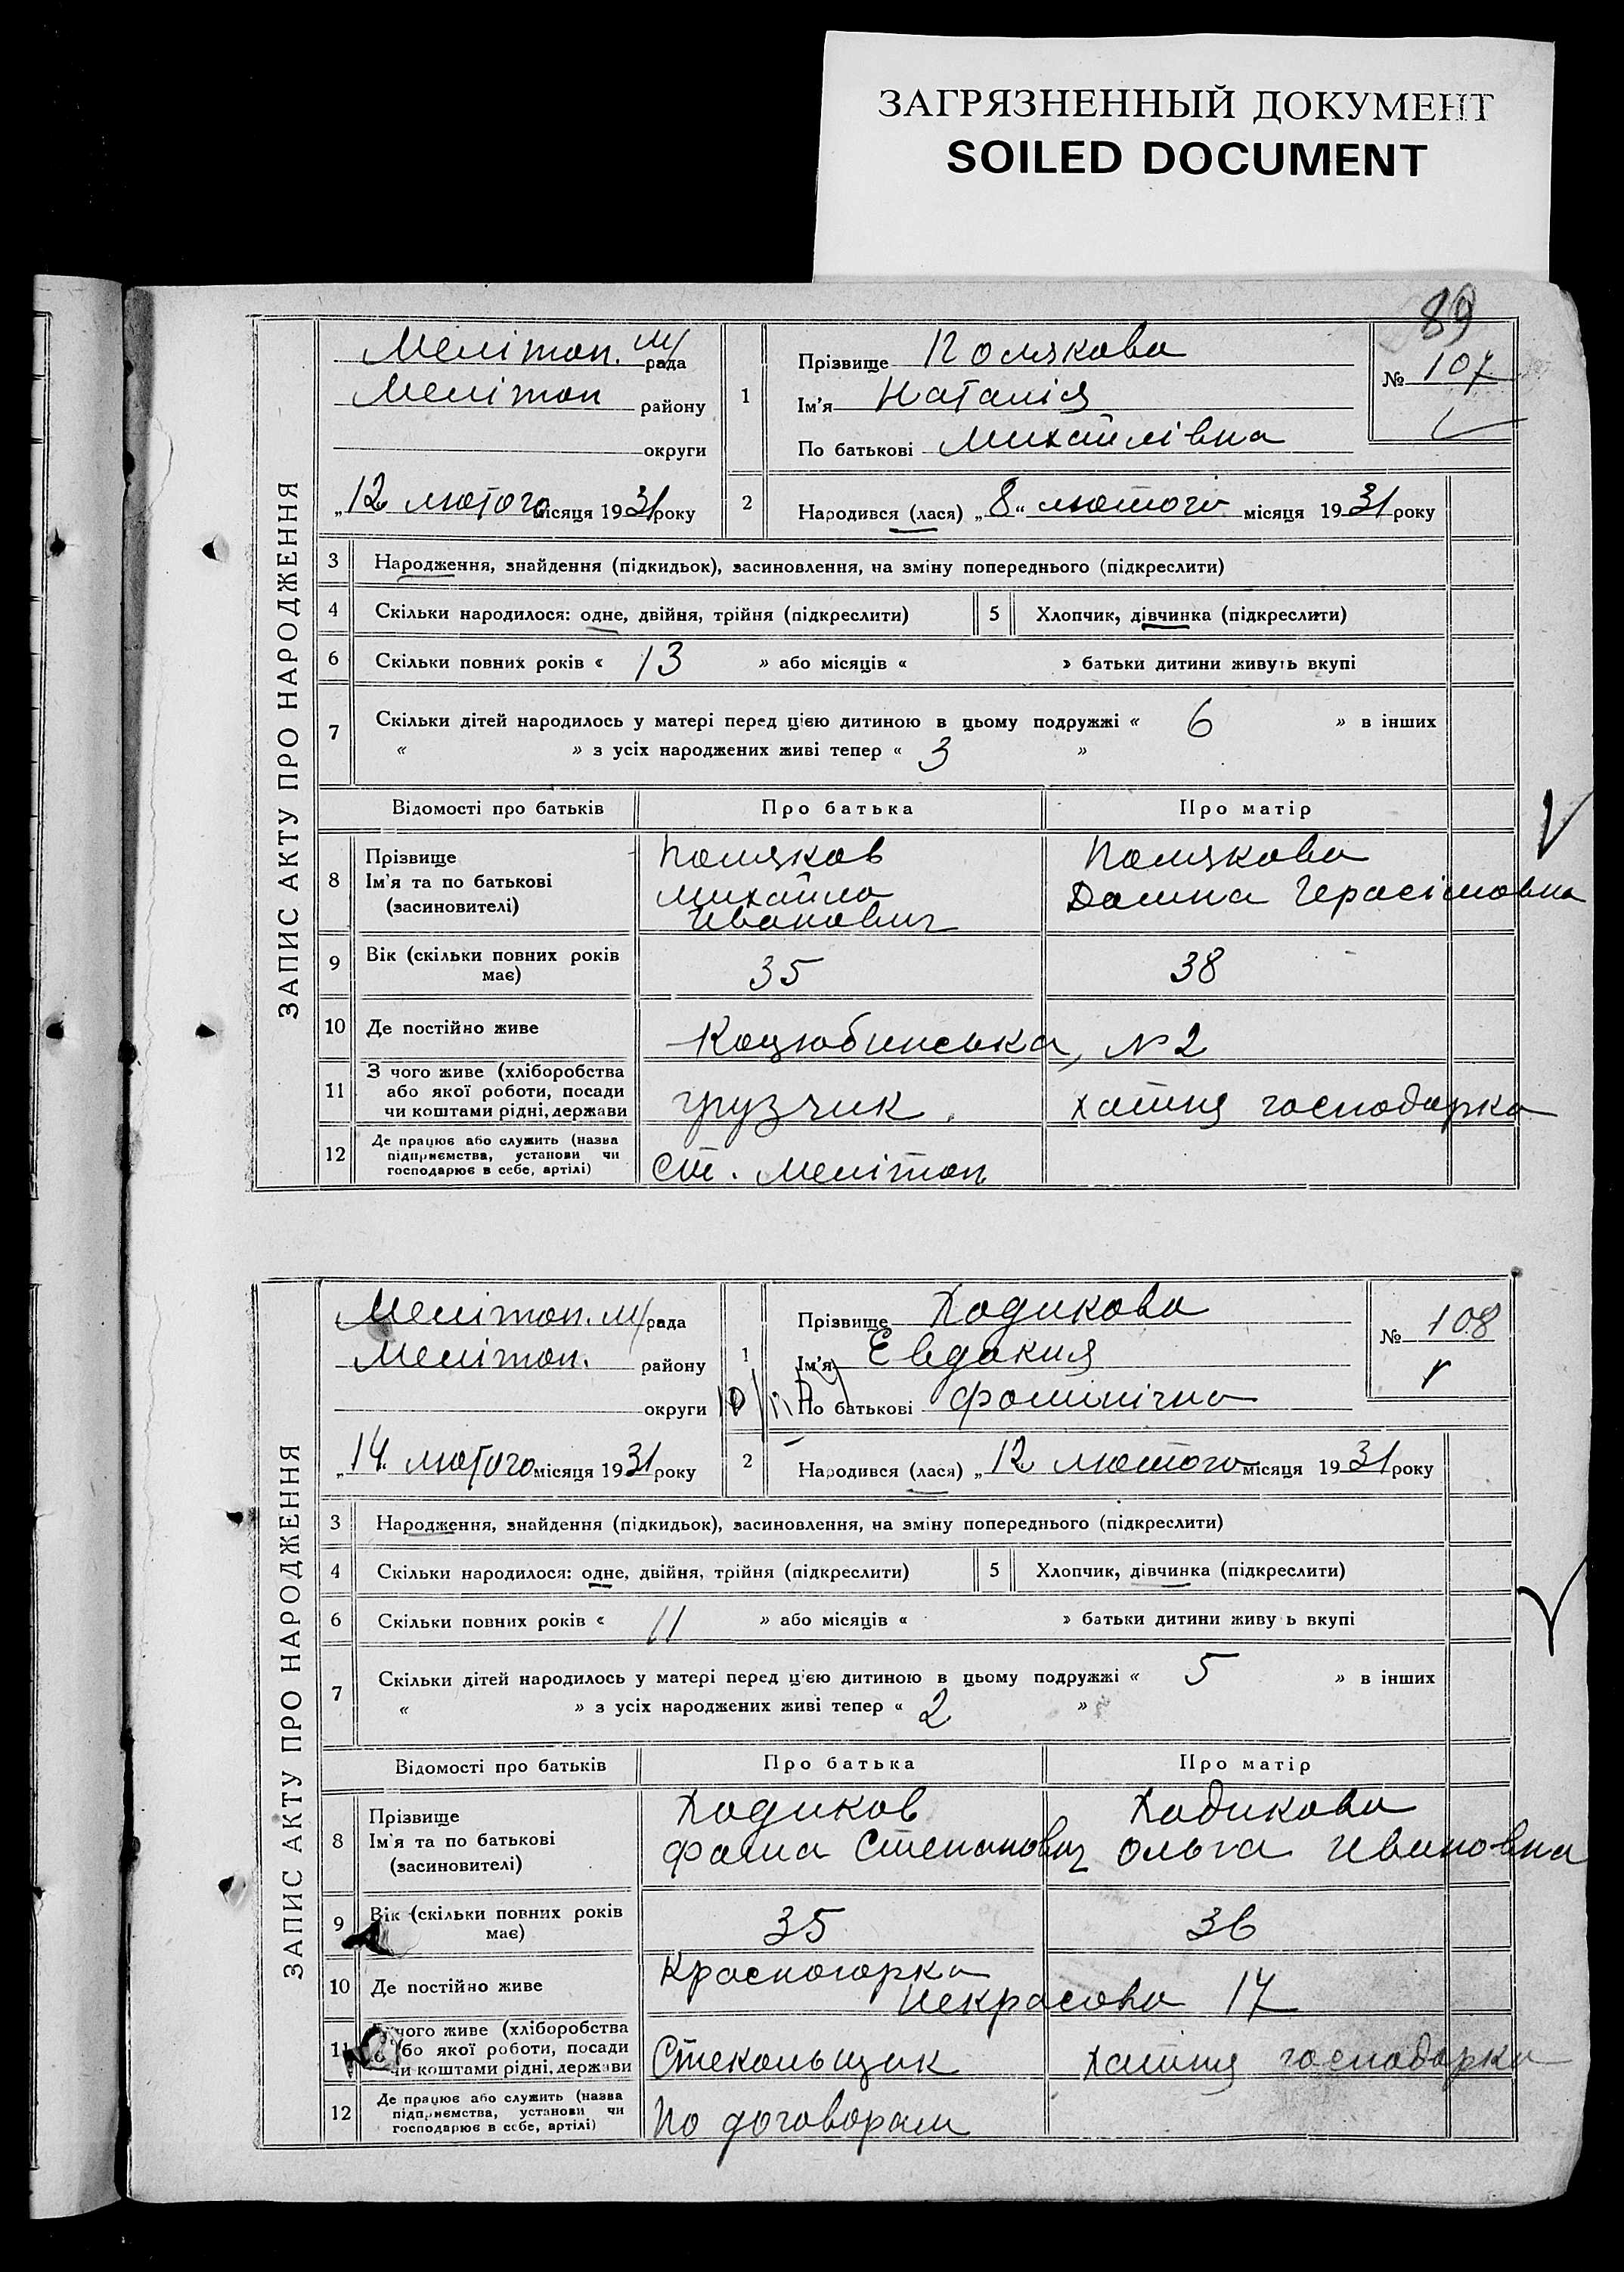 ЗАГРЯЗНЕННЫЙ ДОКУМЕНТ
SOILED DOCUMENT
89
ЗАПИС АКТУ ПРО НАРОДЖЕННЯ
Мелітоп. м/рада
Мелітоп району
округи
„12 лютого місяця 1931 року
1 Прізвище Полякова
Ім'я Наталія
По батькові Михайлівна
№ 107
2 Народився (лася) „8“ лютого місяця 1931 року
3 Народження, знайдення (підкидьок), засиновлення, на зміну попереднього (підкреслити)
4 Скільки народилося: одне, двійня, трійня (підкреслити) 5 Хлопчик, дівчинка (підкреслити)
6 Скільки повних років « 13 » або місяців « » батьки дитини живуть вкупі
7 Скільки дітей народилось у матері перед цією дитиною в цьому подружжі « 6 » в інших
« » з усіх народжених живі тепер « 3 »
Відомості про батьків Про батька Про матір
8 Прізвище
Ім'я та по батькові
(засиновителі)
Поляков
Михайло
Иванович
Полякова
Домна Герасімовна
9 Вік (скільки повних років
має)
35 38
10 Де постійно живе Коцюбинська, №2
11 З чого живе (хліборобства
або якої роботи, посади
чи коштами рідні, держави
грузчик. хатня господарка
12 Де працює або служить (назва
підприємства, установи чи
господарює в себе, артілі)
ст. Мелітоп
ЗАПИС АКТУ ПРО НАРОДЖЕННЯ
Мелітоп. м/рада
Мелітоп. району
округи
„14 лютого місяця 1931 року
1 Прізвище Ходикова
Ім'я Евдокия
По батькові Фомінічна
№ 108
2 Народився (лася) „12 лютого місяця 1931 року
3 Народження, знайдення (підкидьок), засиновлення, на зміну попереднього (підкреслити)
4 Скільки народилося: одне, двійня, трійня (підкреслити) 5 Хлопчик, дівчинка (підкреслити)
6 Скільки повних років « 11 » або місяців « » батьки дитини живу ь вкупі
7 Скільки дітей народилось у матері перед цією дитиною в цьому подружжі « 5 » в інших
« » з усіх народжених живі тепер « 2 »
Відомості про батьків Про батька Про матір
8 Прізвище
Ім'я та по батькові
(засиновителі)
Ходиков
Фома Степанович
Ходикова
Ольга Ивановна
9 Вік (скільки повних років
має)
35 36
10 Де постійно живе
Красногорка
Некрасова 17
11 чого живе (хліборобства
або якої роботи, посади
чи коштами рідні, держави
Стекольщик хатня господарка
12 Де працює або служить (назва
підприємства, установи чи
господарює в себе, артілі)
по договорам